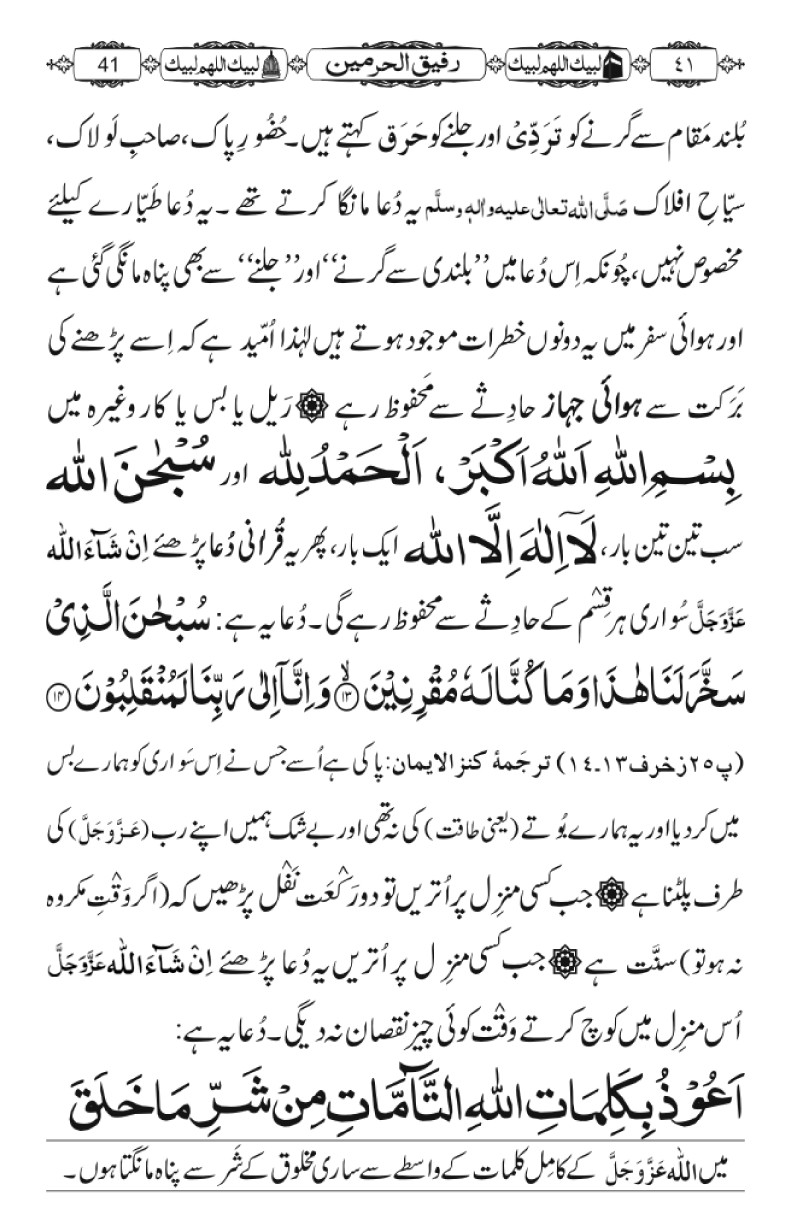 ٤١ لبیك اللهم لبیك رفیق الحرمین لبیك اللهم لبیك 41
بُلند مَقام سے گرنے کو تَرَدِّیْ اور جلنے کو حَرَق کہتے ہیں۔ حُضُورِ پاک، صاحبِ لَولاک،
سیّاحِ افلاک صَلَّی اللہ تعالٰی علیہ واٰلہٖ وسلَّم یہ دُعا مانگا کرتے تھے ۔ یہ دُعا طَیّارے کیلئے
مخصوص نہیں، چُونکہ اِس دُعا میں ’’بلندی سے گرنے‘‘ اور ’’جلنے‘‘ سے بھی پناہ مانگی گئی ہے
اور ہوائی سفر میں یہ دونوں خطرات موجود ہوتے ہیں لہٰذا اُمّید ہے کہ اِسے پڑھنے کی
بَرَکت سے ہوائی جہاز حادِثے سے مَحفوظ رہے ۞ رَیل یا بس یا کار وغیرہ میں
بِسْمِ اللہِ اَللہُ اَکْبَرْ، اَلْحَمْدُ لِلّٰہ اور سُبْحٰنَ اللہ
سب تین تین بار، لَآ اِلٰہَ اِلَّا اللہ ایک بار، پھر یہ قُرانی دُعا پڑھئے اِنْ شَآءَ اللہ
عَزَّوَجَلَّ سُواری ہر قِسْم کے حادِثے سے محفوظ رہے گی۔ دُعا یہ ہے: سُبْحٰنَ الَّذِیْ
سَخَّرَ لَنَا ھٰذَا وَمَا کُنَّا لَہٗ مُقْرِنِیْنَ ﴿ۙ۱۳﴾ وَاِنَّاۤ اِلٰی رَبِّنَا لَمُنْقَلِبُوْنَ ﴿۱۴﴾
(پ۲۵ زخرف ۱۳۔۱٤) ترجَمۂ کنز الایمان: پاکی ہے اُسے جس نے اِس سَواری کو ہمارے بس
میں کر دیا اور یہ ہمارے بُوتے (یعنی طاقت) کی نہ تھی اور بے شک ہمیں اپنے رب (عَزَّوَجَلَّ) کی
طرف پلٹنا ہے ۞ جب کسی منزِل پر اُتریں تو دو رَکْعَت نَفْل پڑھیں کہ (اگر وَقْتِ مکروہ
نہ ہو تو) سنَّت ہے ۞ جب کسی منزِل پر اُتریں یہ دُعا پڑھئے اِنْ شَآءَ اللہ عَزَّوَجَلَّ
اُس منزِل میں کوچ کرتے وَقْت کوئی چیز نقصان نہ دیگی۔ دُعا یہ ہے:
اَعُوْذُ بِکَلِمَاتِ اللہِ التَّآمَّاتِ مِنْ شَرِّ مَا خَلَقَ
میں اللہ عَزَّوَجَلَّ کے کامِل کلمات کے واسطے سے ساری مخلوق کے شَر سے پناہ مانگتا ہوں۔